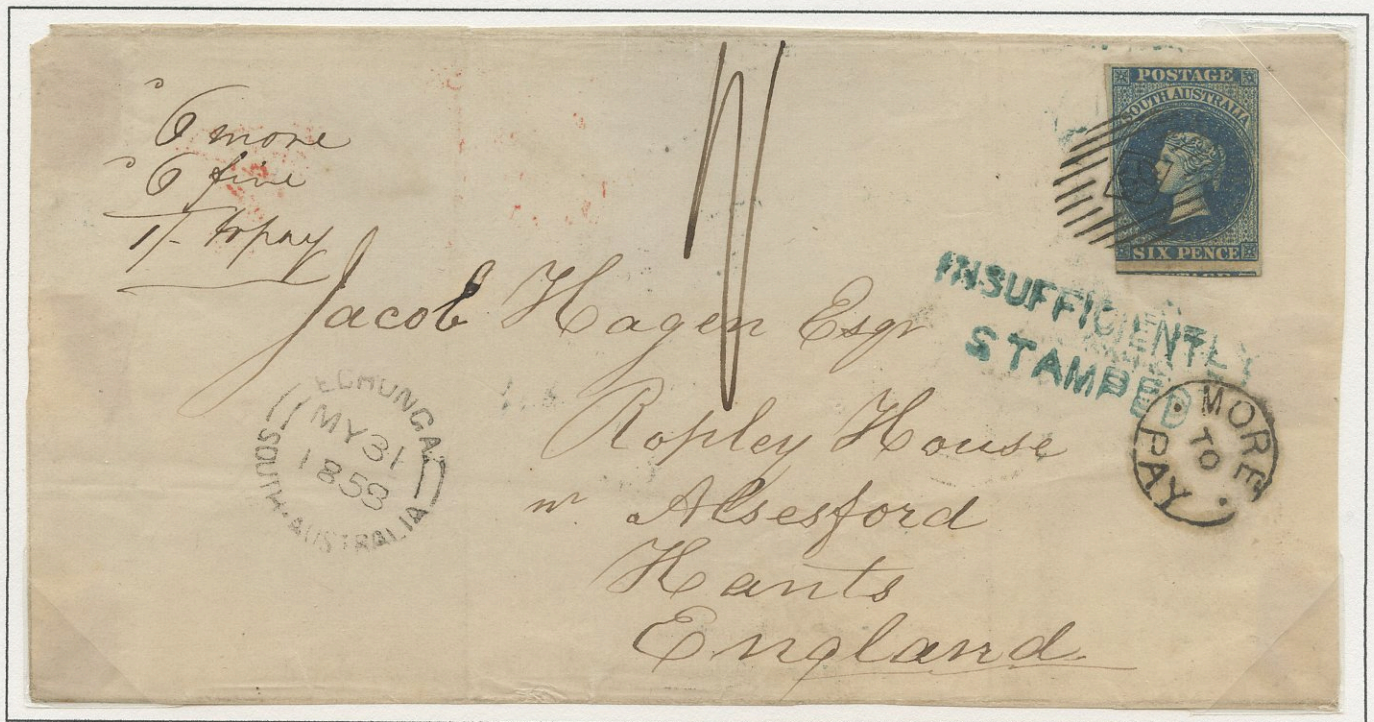 6 more
6 fine
1/- to pay
POSTAGE
SOUTH AUSTRALIA
SIX PENCE
INSUFFICIENTLY
STAMPED
Jacob Hagen Esqr
Ropley House
nr Alsesford
Hants
England
MORE
TO
PAY
ECHUNGA
MY 31
1858
SOUTH-AUSTRALIA